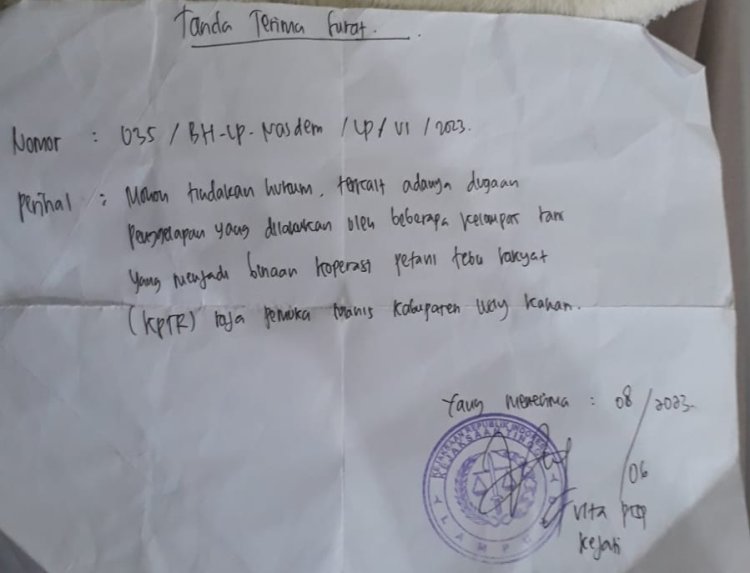 Tanda Terima Surat.
Nomor : 035 / BH-LP-Nasdem / LP / VI / 2023.
Perihal : Mohon tindakan hukum, terkait adanya dugaan
Penggelapan yang dilakukan oleh beberapa kelompok tani
yang menjadi binaan koperasi petani tebu rakyat
(KPTR) Raja Pemuka Manis Kabupaten Way Kanan.
Yang Menerima : 08 / 06 / 2023.
KEJAKSAAN REPUBLIK INDONESIA
KEJAKSAAN TINGGI
LAMPUNG
Vita PTSP
Kejati